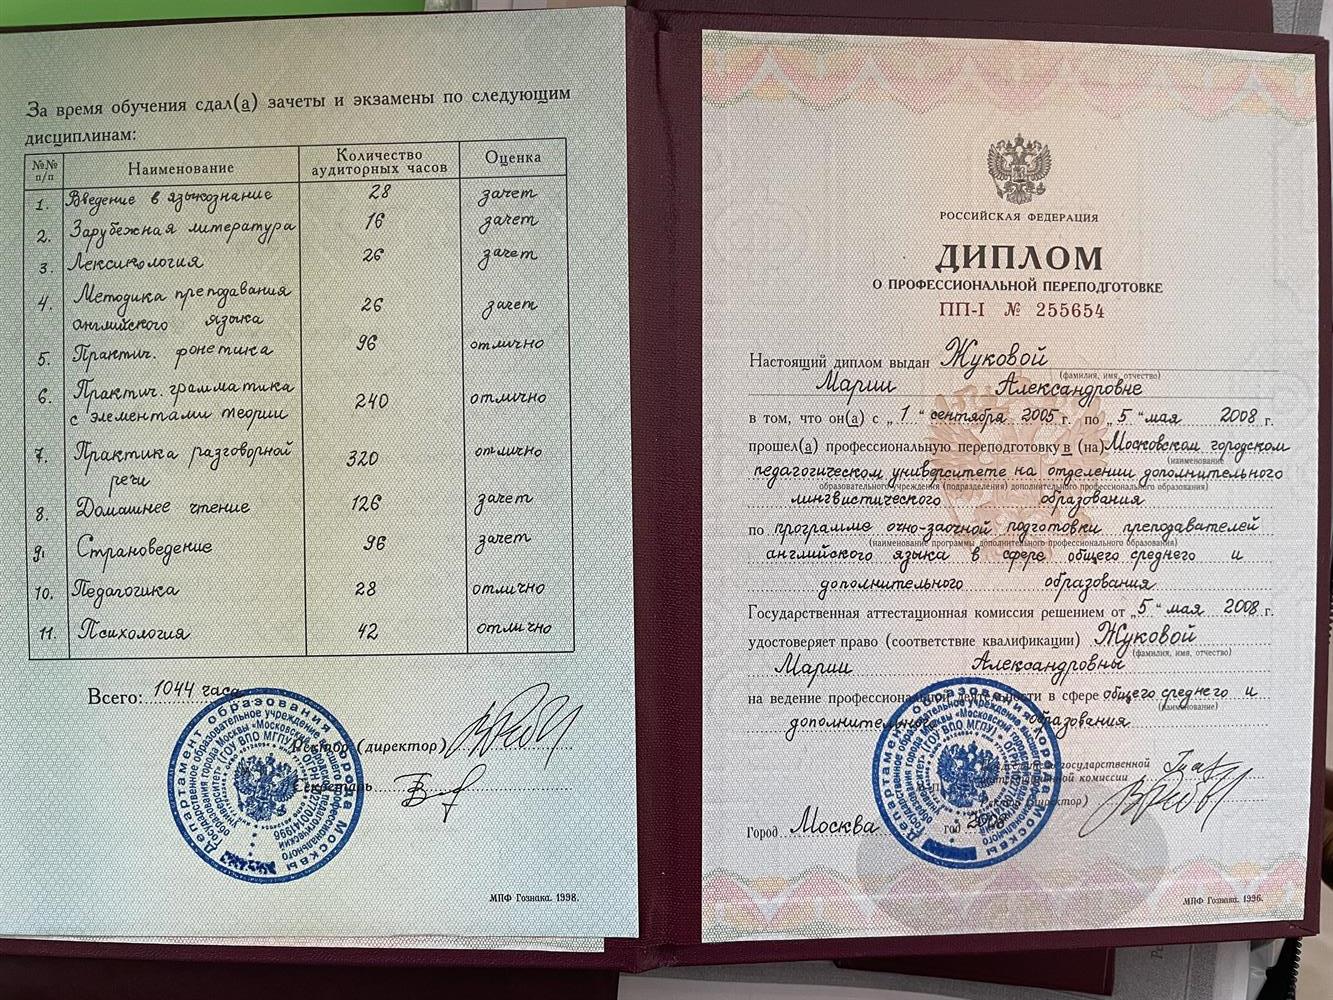 За время обучения сдал(а) зачеты и экзамены по следующим
дисциплинам:
№№ п/п Наименование Количество аудиторных часов Оценка
1. Введение в языкознание 28 зачет
2. Зарубежная литература 16 зачет
3. Лексикология 26 зачет
4. Методика преподавания английского языка 26 зачет
5. Практич. фонетика 96 отлично
6. Практич. грамматика с элементами теории 240 отлично
7. Практика разговорной речи 320 отлично
8. Домашнее чтение 126 зачет
9. Страноведение 96 зачет
10. Педагогика 28 отлично
11. Психология 42 отлично
Всего: 1044 часа
Ректор (директор)
Секретарь
МПФ Гознака. 1998.
РОССИЙСКАЯ ФЕДЕРАЦИЯ
ДИПЛОМ
О ПРОФЕССИОНАЛЬНОЙ ПЕРЕПОДГОТОВКЕ
ПП-I № 255654
Настоящий диплом выдан Жуковой
(фамилия, имя, отчество)
Марии Александровне
в том, что он(а) с „1“ сентября 2005 г. по „5“ мая 2008 г.
прошел(а) профессиональную переподготовку в (на) Московском городском
(наименование
педагогическом университете на отделении дополнительного
образовательного учреждения (подразделения) дополнительного профессионального образования)
лингвистического образования
по программе очно-заочной подготовки преподавателей
(наименование программы дополнительного профессионального образования)
английского языка в сфере общего среднего и
дополнительного образования
Государственная аттестационная комиссия решением от „5“ мая 2008 г.
удостоверяет право (соответствие квалификации) Жуковой
(фамилия, имя, отчество)
Марии Александровны
на ведение профессиональной деятельности в сфере общего среднего и
(наименование)
дополнительного образования
государственной
комиссии
Ректор (директор)
Город Москва год 2008
МПФ Гознака. 1996.